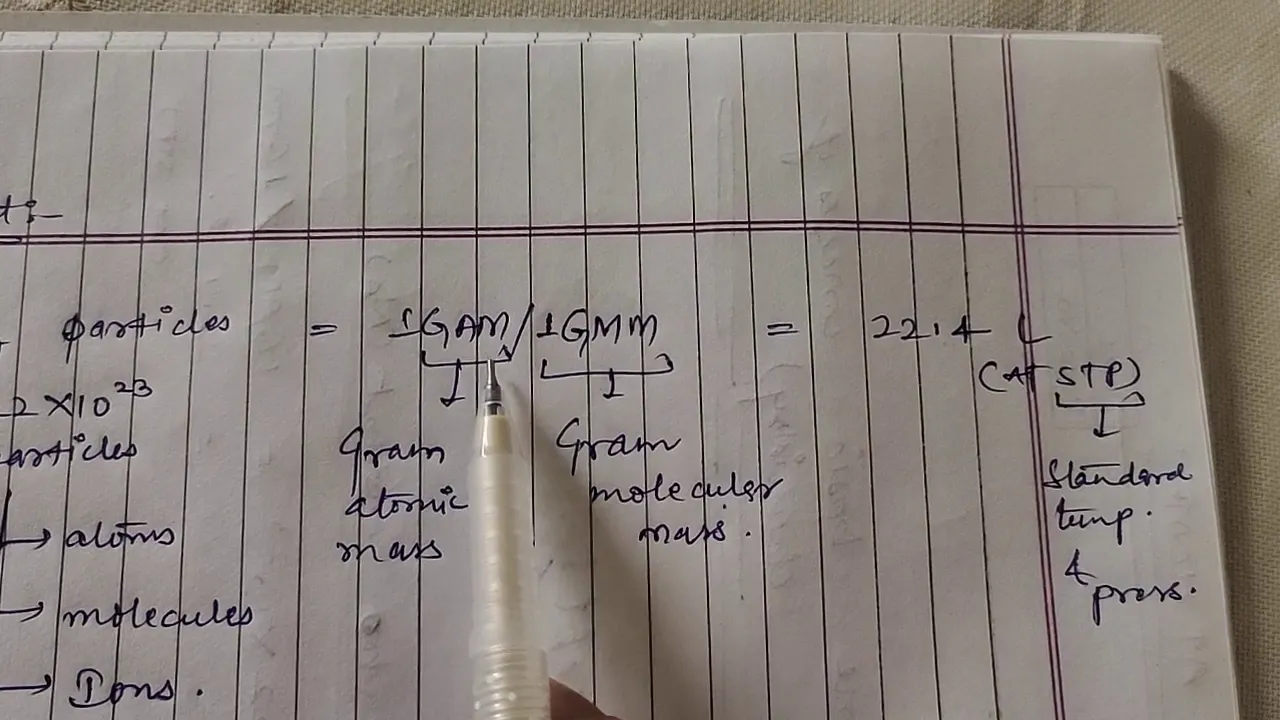 t:-
particles = 1GAM/1GMM = 22.4 L
(At STP)
2 × 10²³
articles
Gram
atomic
mass
Gram
molecular
mass.
Standard
temp.
& press.
→ atoms
→ molecules
→ Ions.